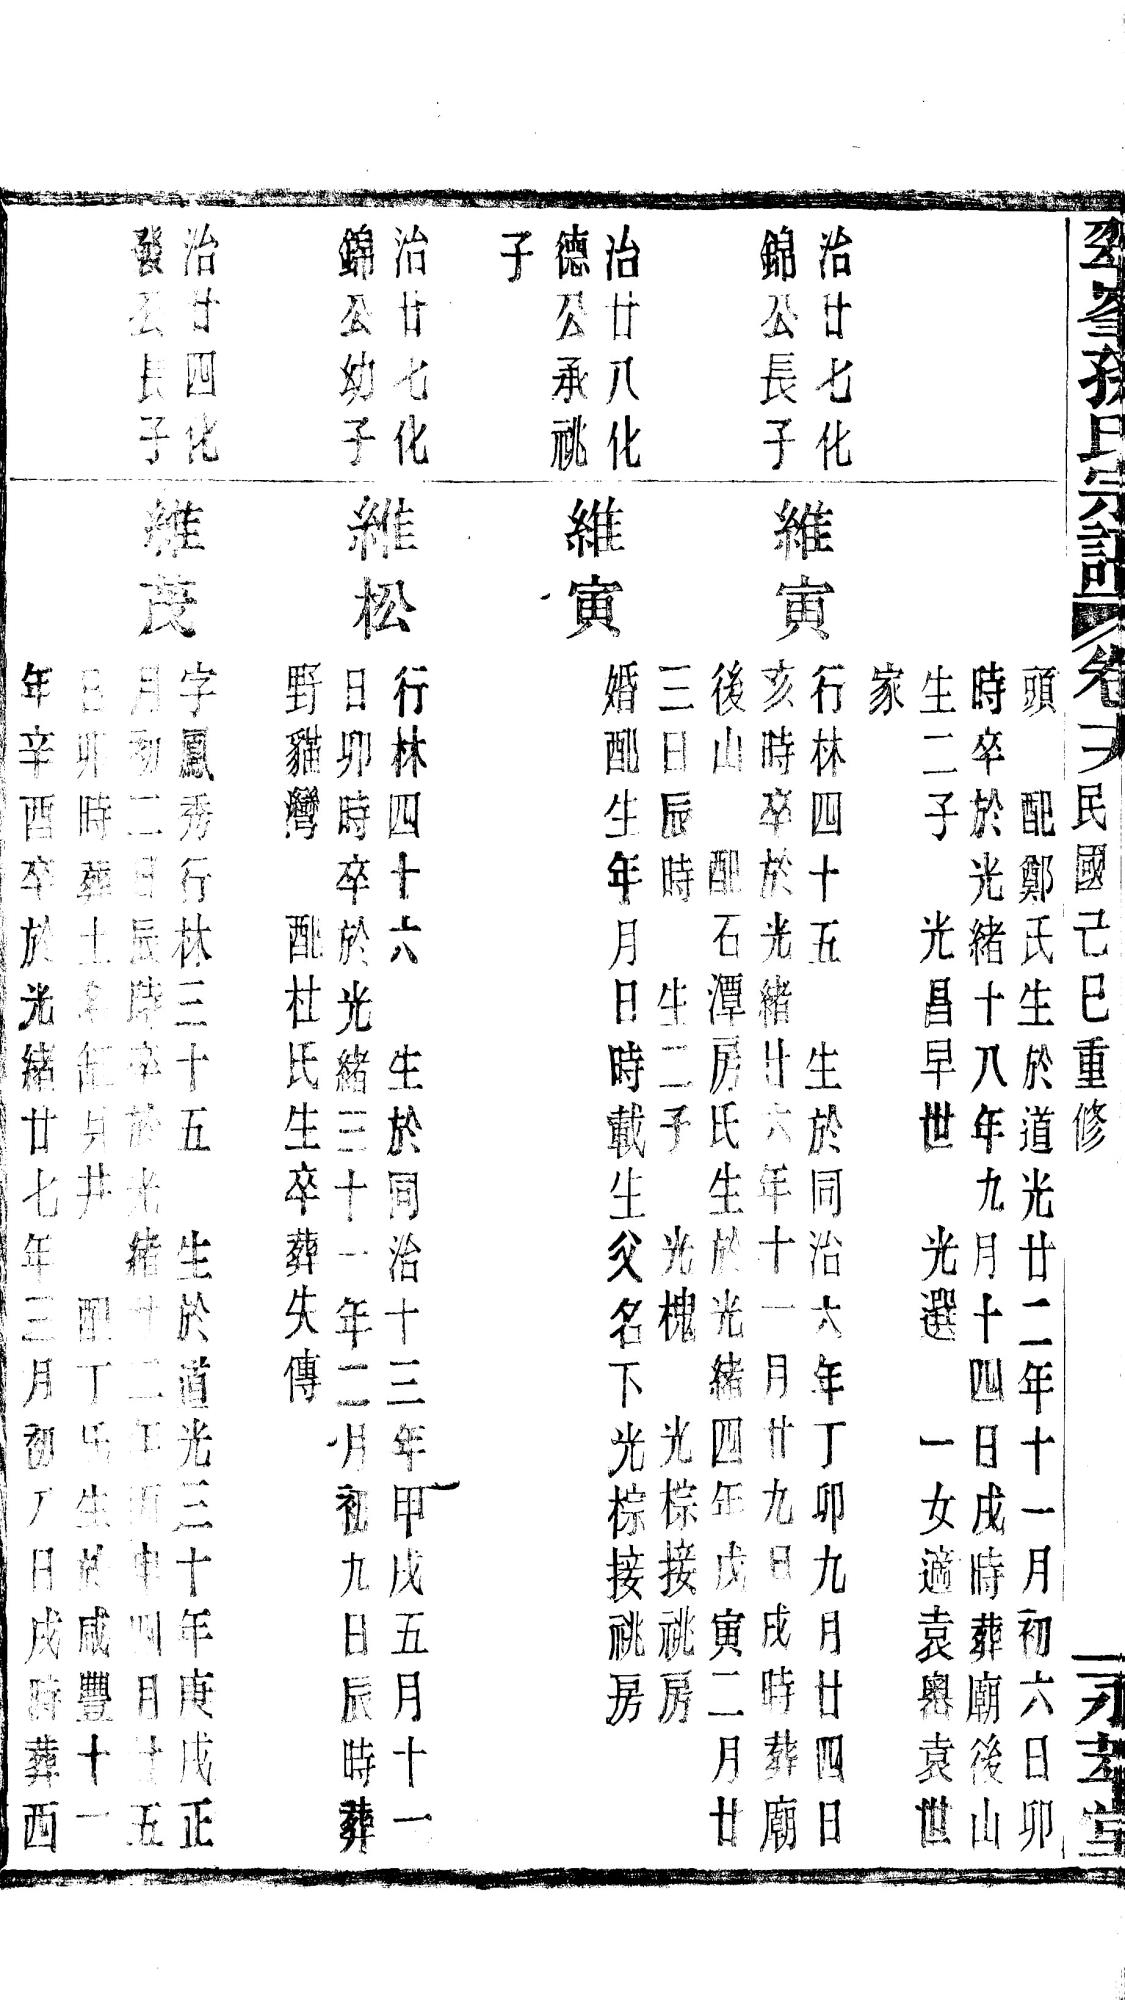 峯孫氏宗譜 卷 民國己巳重修
頭 配鄭氏生於道光廿二年十一月初六日卯
時卒於光緒十八年九月十四日戌時葬廟後山
生二子 光昌早世 光選 一女適袁粵袁世
家
治廿七化
錦公長子
維寅
行林四十五 生於同治六年丁卯九月廿四日
亥時卒於光緒廿六年十一月廿九日戌時葬廟
後山 配石潭房氏生於光緒四年戊寅二月廿
三日辰時 生二子 光槐 光棕接祧房
治廿八化
德公承祧
子
維寅
婚配生年月日時載生父名下光棕接祧房
治廿七化
錦公幼子
維松
行林四十六 生於同治十三年甲戌五月十一
日卯時卒於光緒三十一年二月初九日辰時葬
野貓灣 配杜氏生卒葬失傳
治廿四化
發公長子
維茂
字鳳秀行林三十五 生於道光三十年庚戌正
月初二日辰時卒於光緒廿二年丙申四月廿五
日卯時葬土名 井 配丁氏生於咸豐十一
年辛酉卒於光緒廿七年三月初八日戌時葬西